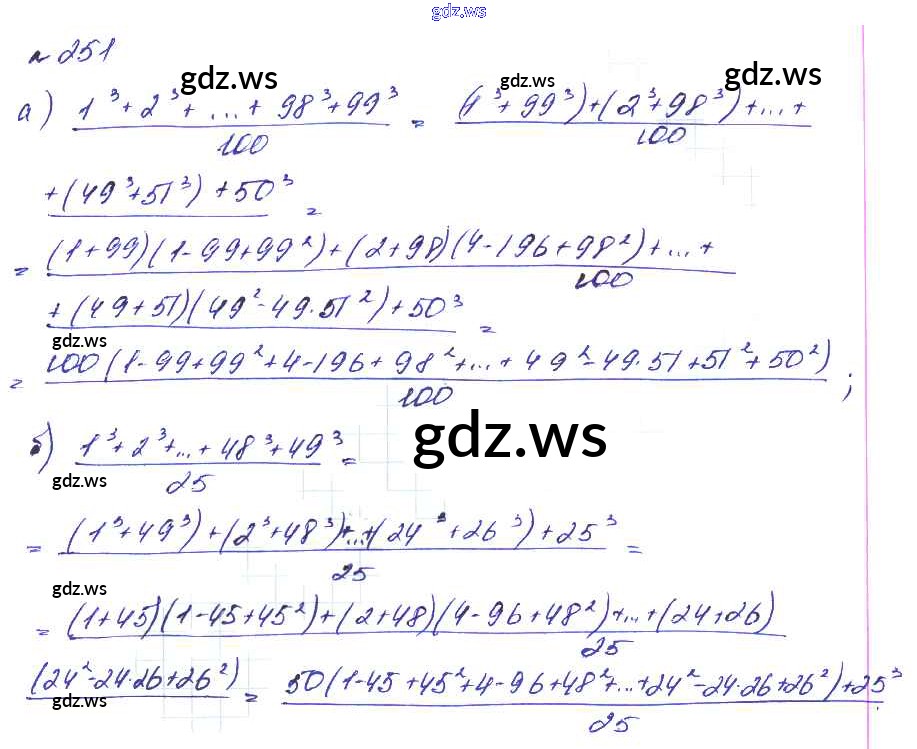 gdz.ws
№ 251
gdz.ws gdz.ws gdz.ws
а) (1³+2³+...+98³+99³)/100 = ((1³+99³)+(2³+98³)+...+
+(49³+51³)+50³)/100 =
= ((1+99)(1-99+99²)+(2+98)(4-196+98²)+...+
+(49+51)(49²-49·51²)+50³)/100 =
gdz.ws
= 100(1-99+99²+4-196+98²+...+49²-49·51+51²+50²)/100 ;
б) (1³+2³+...+48³+49³)/25 =
gdz.ws gdz.ws
= ((1³+49³)+(2³+48³)+...+(24³+26³)+25³)/25 =
gdz.ws
= ((1+45)(1-45+45²)+(2+48)(4-96+48²)+...+(24+26)/25
(24²-24·26+26²) = (50(1-45+45²+4-96+48²+...+24²-24·26+26²)+25³)/25
gdz.ws gdz.ws